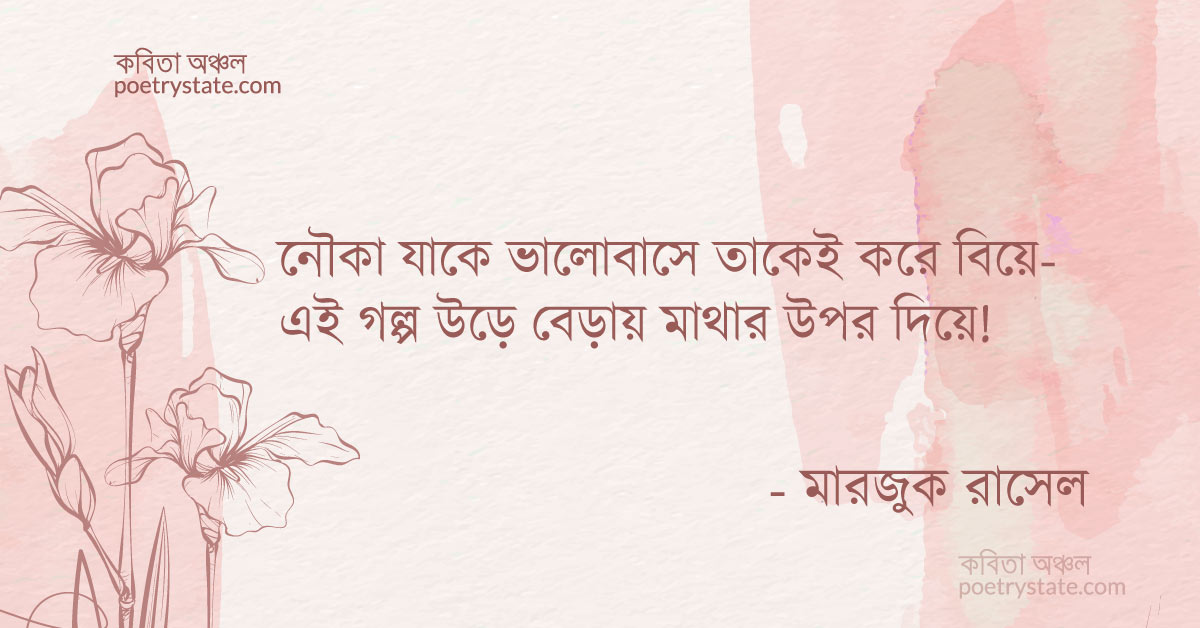 কবিতা অঞ্চল
poetrystate.com
নৌকা যাকে ভালোবাসে তাকেই করে বিয়ে-
এই গল্প উড়ে বেড়ায় মাথার উপর দিয়ে!
- মারজুক রাসেল
কবিতা অঞ্চল
poetrystate.com